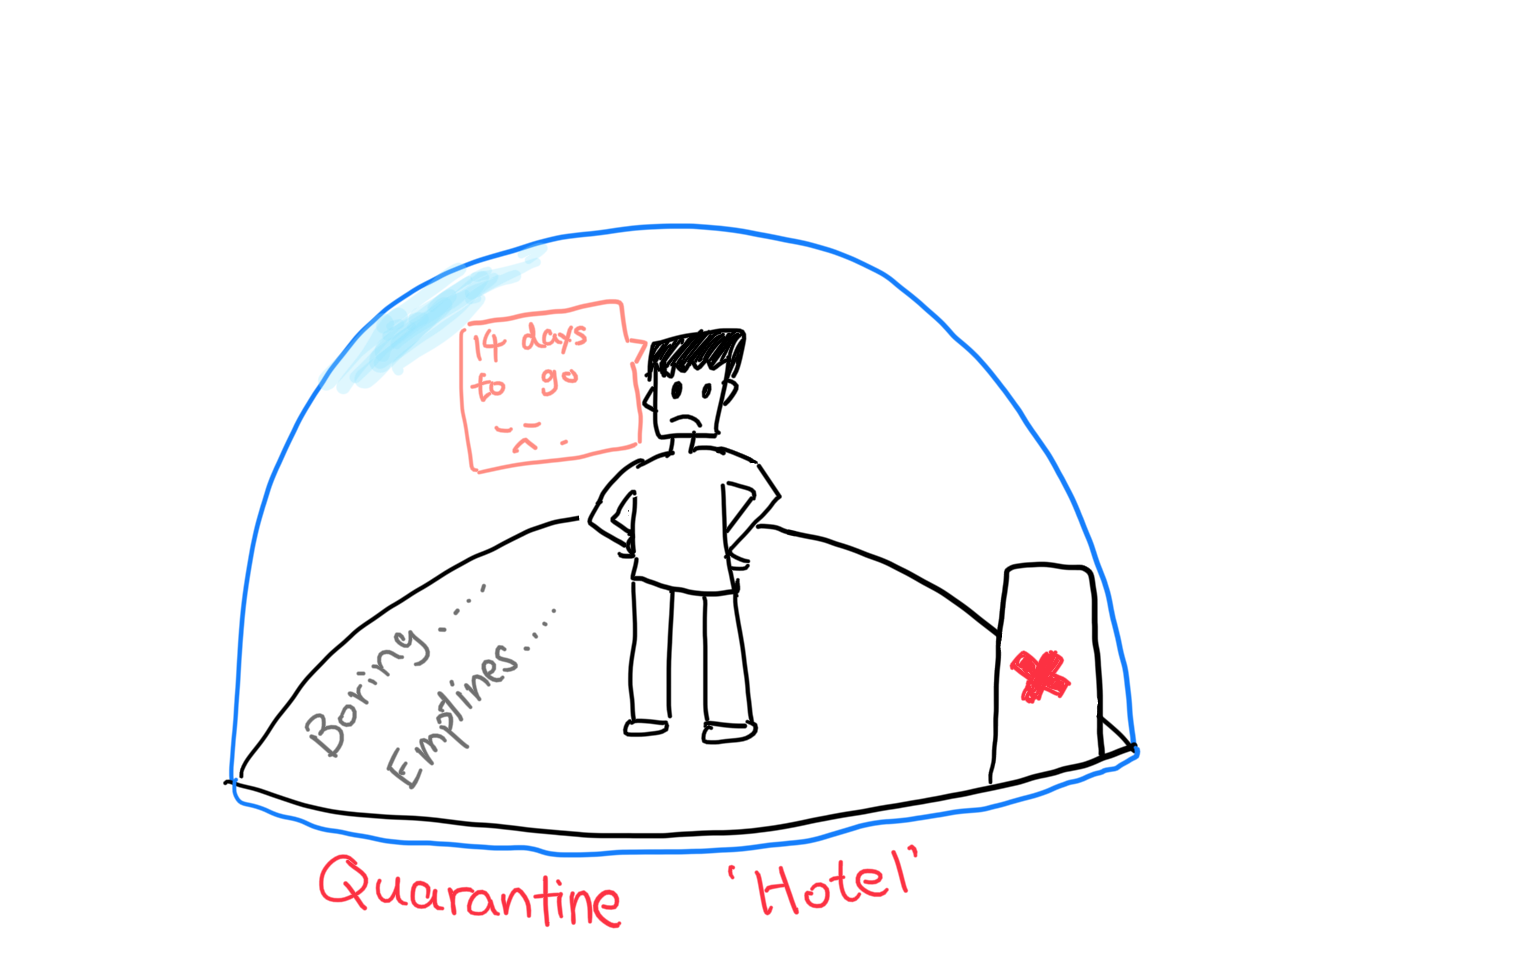 14 days
to go
Boring....
Emptines....
Quarantine 'Hotel'